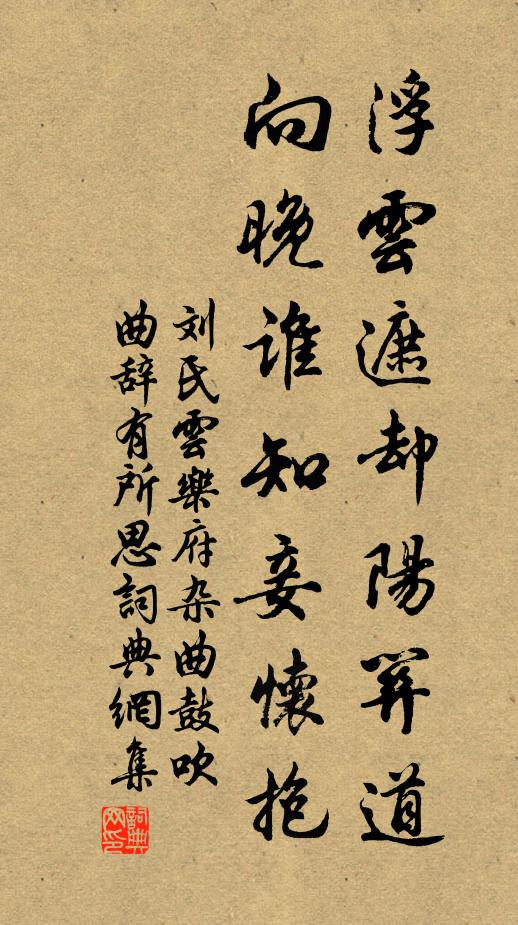 浮雲遮却陽関道
向晚谁知妾懷抱
刘氏雲樂府杂曲鼓吹
曲辞有所思詞典網集
詞典网印